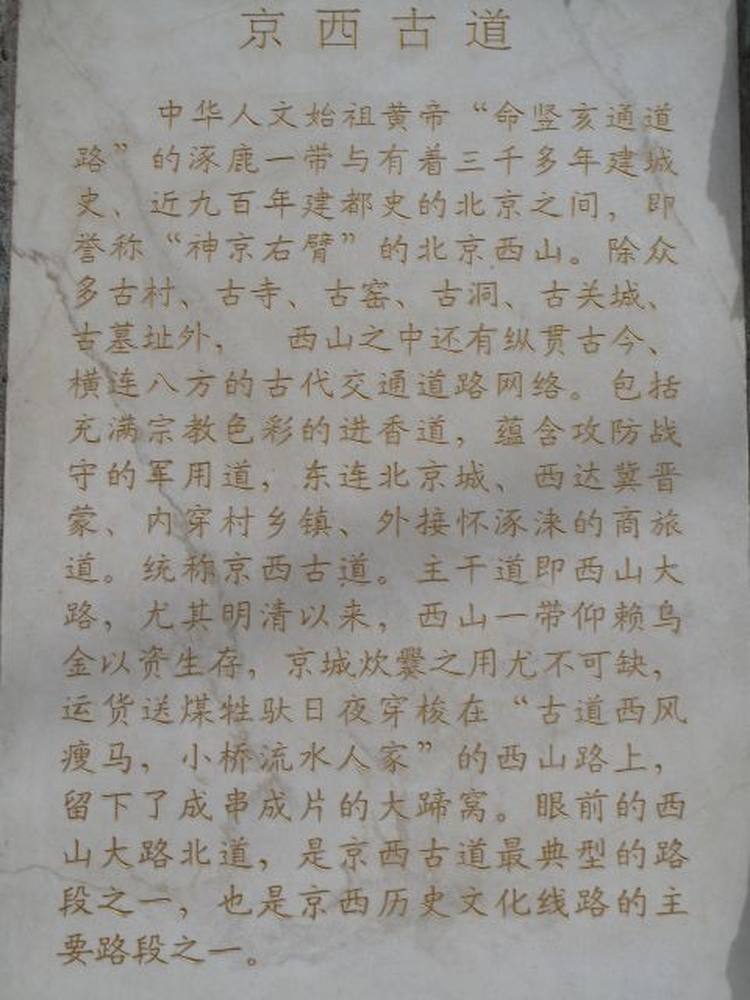 京西古道
中华人文始祖黄帝“命竖亥通道
路”的涿鹿一带与有着三千多年建城
史、近九百年建都史的北京之间，即
誉称“神京右臂”的北京西山。除众
多古村、古寺、古窑、古洞、古关城、
古墓址外，　西山之中还有纵贯古今、
横连八方的古代交通道路网络。包括
充满宗教色彩的进香道，蕴含攻防战
守的军用道，东连北京城、西达冀晋
蒙、内穿村乡镇、外接怀涿涞的商旅
道。统称京西古道。主干道即西山大
路，尤其明清以来，西山一带仰赖乌
金以资生存，京城炊爨之用尤不可缺，
运货送煤牲驮日夜穿梭在“古道西风
瘦马，小桥流水人家”的西山路上，
留下了成串成片的大蹄窝。眼前的西
山大路北道，是京西古道最典型的路
段之一，也是京西历史文化线路的主
要路段之一。